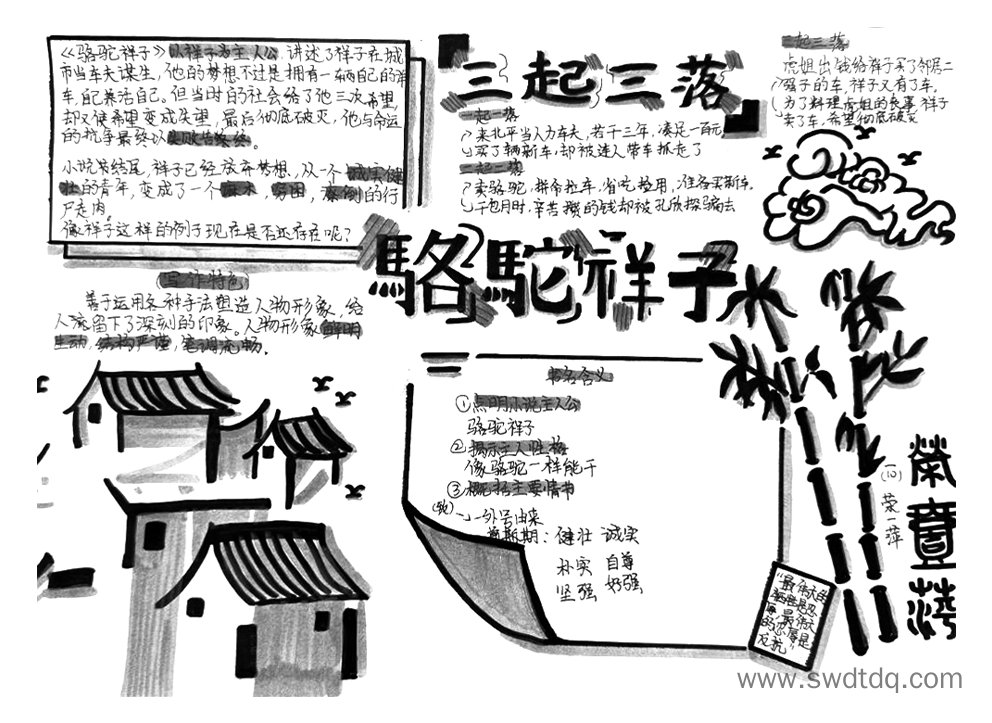 《骆驼祥子》以祥子为主人公,讲述了祥子在城
市当车夫谋生,他的梦想不过是拥有一辆自己的洋
车,自己养活自己。但当时的社会给了他三次希望
却又使希望变成失望,最后彻底破灭,他与命运
的抗争最终以失败告终。
小说末结尾,祥子已经放弃梦想,从一个诚实健
壮的青年,变成了一个麻木,穷困,潦倒的行
尸走肉。
像祥子这样的例子现在是否还存在呢?
写作特色
善于运用各种手法塑造人物形象,给
人流留下了深刻的印象。人物形象鲜明
生动,结构严谨,笔调流畅。
三起三落
一起一落
来北平当人力车夫,若干三年,凑足一百元
买了辆新车,却被连人带车抓走了
二起二落
卖骆驼,拼命拉车,省吃俭用,准备买新车。
干包月时,辛苦攒的钱却被孔侦探骗去
三起三落
虎姐出钱给祥子买了邻居二
强子的车,祥子又有了车。
为了料理虎姐的丧事,祥子
卖了车,希望彻底破灭
駱駝祥子
书名含义
①点明小说主人公
骆驼祥子
②揭示主人性格
像骆驼一样能干
③概括主要情节
外号由来
健壮 诚实
朴实 自尊
坚强 好强
"最伟大的
牺牲是忍
辱,最伟大
的忍辱是
反抗"
荣一萍
www.swdtdq.com